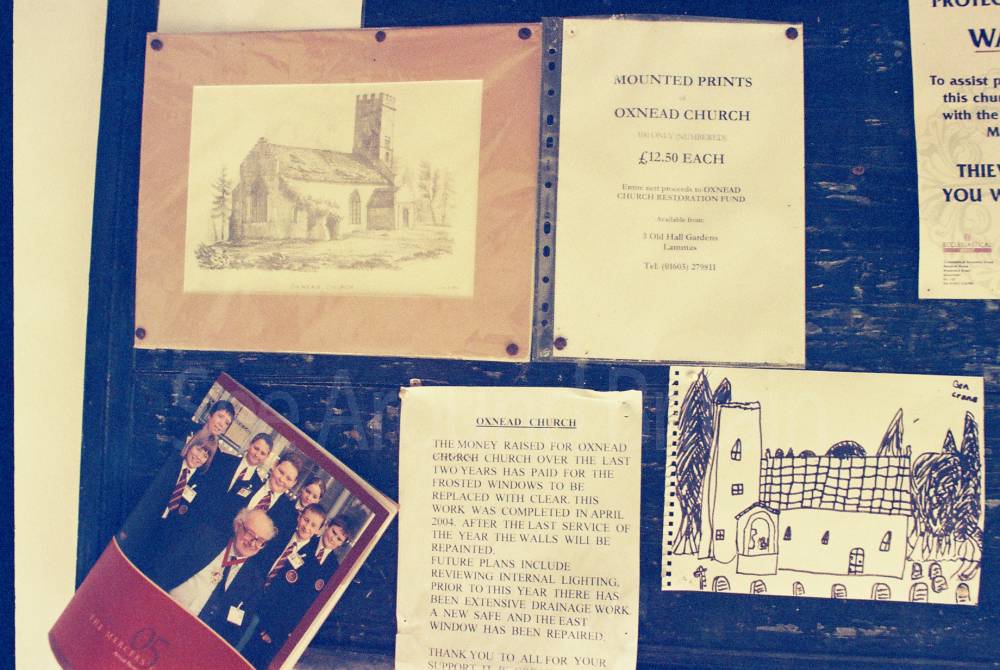 OXNEAD CHURCH
MOUNTED PRINTS
of
OXNEAD CHURCH
100 ONLY (NUMBERED)
£12.50 EACH
Entire nett proceeds to OXNEAD
CHURCH RESTORATION FUND
Available from:
3 Old Hall Gardens
Lammas
Tel: (01603) 279811
PROTEC
WA
To assist p
this chur
with the
M
THIEV
YOU W
ECCLESIASTICAL
THE MERCERS
05
OXNEAD CHURCH
THE MONEY RAISED FOR OXNEAD
CHURCH CHURCH OVER THE LAST
TWO YEARS HAS PAID FOR THE
FROSTED WINDOWS TO BE
REPLACED WITH CLEAR. THIS
WORK WAS COMPLETED IN APRIL
2004. AFTER THE LAST SERVICE OF
THE YEAR THE WALLS WILL BE
REPAINTED.
FUTURE PLANS INCLUDE
REVIEWING INTERNAL LIGHTING.
PRIOR TO THIS YEAR THERE HAS
BEEN EXTENSIVE DRAINAGE WORK.
A NEW SAFE AND THE EAST
WINDOW HAS BEEN REPAIRED.
THANK YOU TO ALL FOR YOUR
Ben
Crane